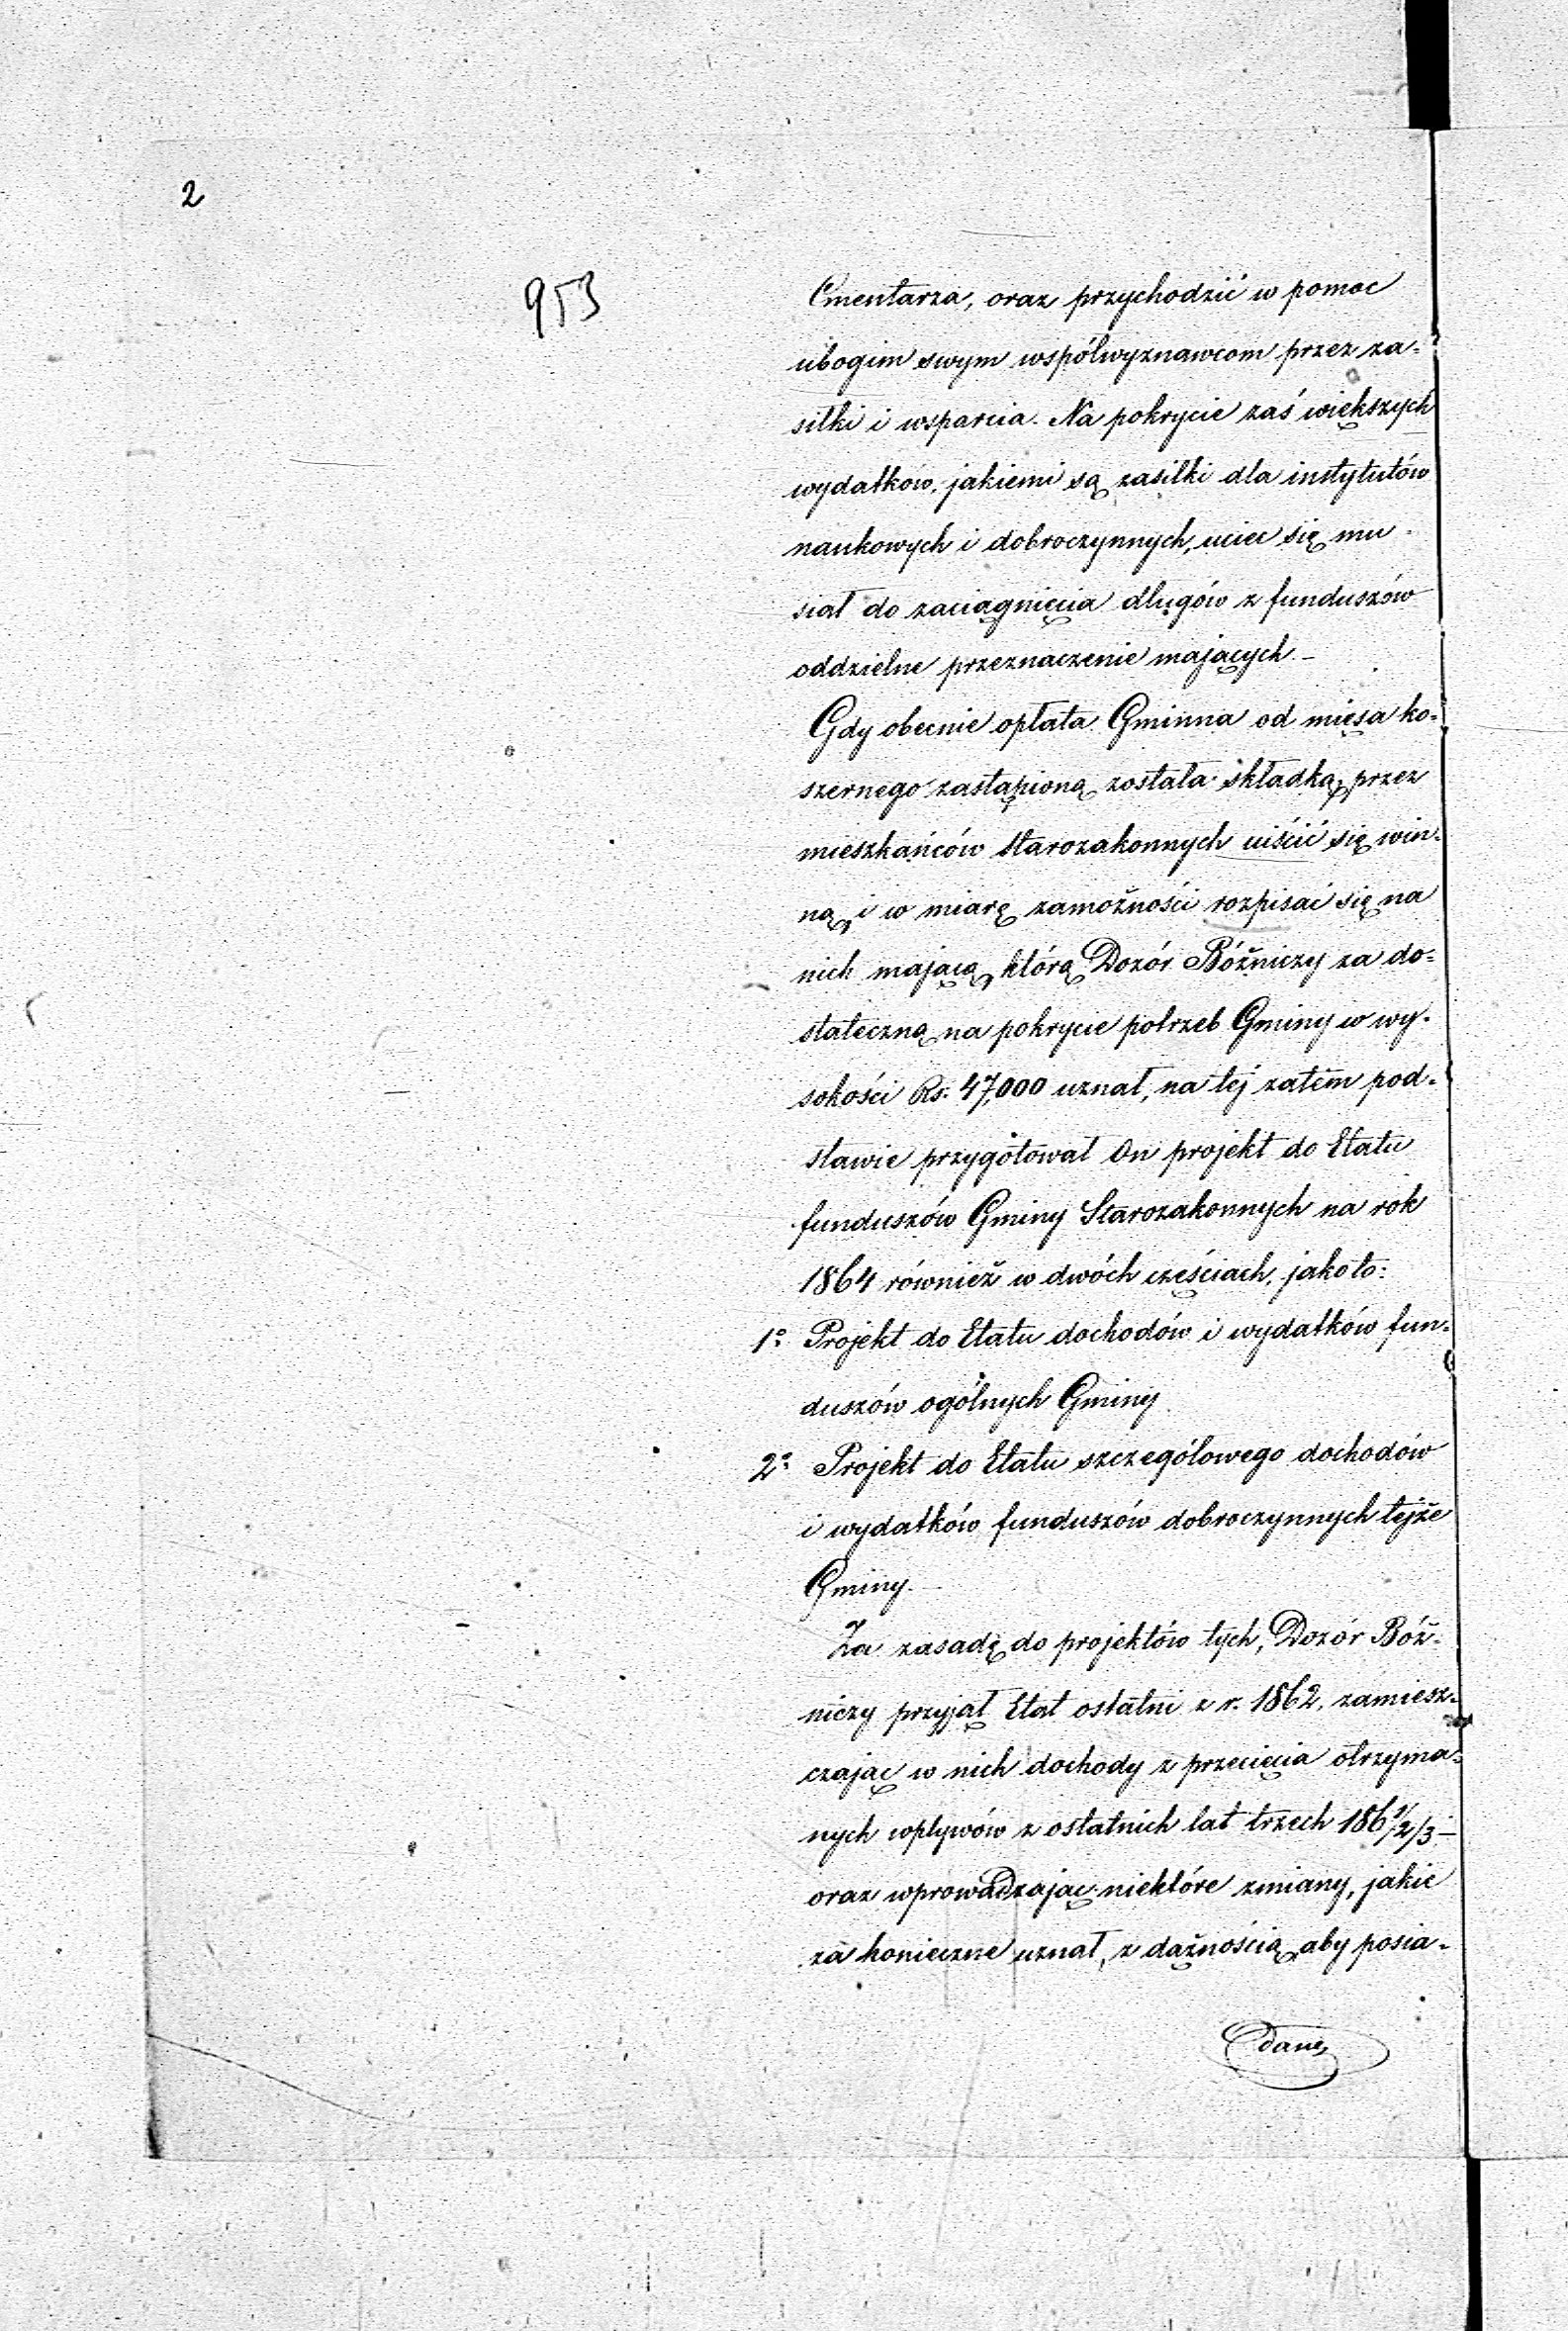 2
953
Cmentarza, oraz przychodzić w pomoc
ubogim swym współwyznawcom przez za-
siłki i wsparcia. Na pokrycie zaś większych
wydatków, jakiemi są zasiłki dla instytutów
naukowych i dobroczynnych, uciec się mu-
siał do zaciągnięcia długów z funduszów
oddzielne przeznaczenie mających.-
Gdy obecnie opłata Gminna od mięsa ko-
szernego zastąpioną została składką, przez
mieszkańców starozakonnych uiścić się win-
ną, i w miarę zamożności rozpisać się na
nich mającą, którą Dozór Bóżniczy za do-
stateczną na pokrycie potrzeb Gminy w wy-
sokości Rs. 47,000 uznał, na tej zatem pod-
stawie przygotował On projekt do Etatu
funduszów Gminy Starozakonnych na rok
1864 również w dwóch częściach, jako to:
1º Projekt do Etatu dochodów i wydatków fun-
duszów ogólnych Gminy
2º Projekt do Etatu szczegółowego dochodów
i wydatków funduszów dobroczynnych tejże
Gminy.-
Za zasadę do projektów tych, Dozór Bóż-
niczy przyjął Etat ostatni z r. 1862, zamiesz-
czając w nich dochody z przecięcia otrzyma-
nych wpływów z ostatnich lat trzech 186 1/2/3 -
oraz wprowadzając niektóre zmiany, jakie
za konieczne uznał, z dążnością, aby posia-
dane